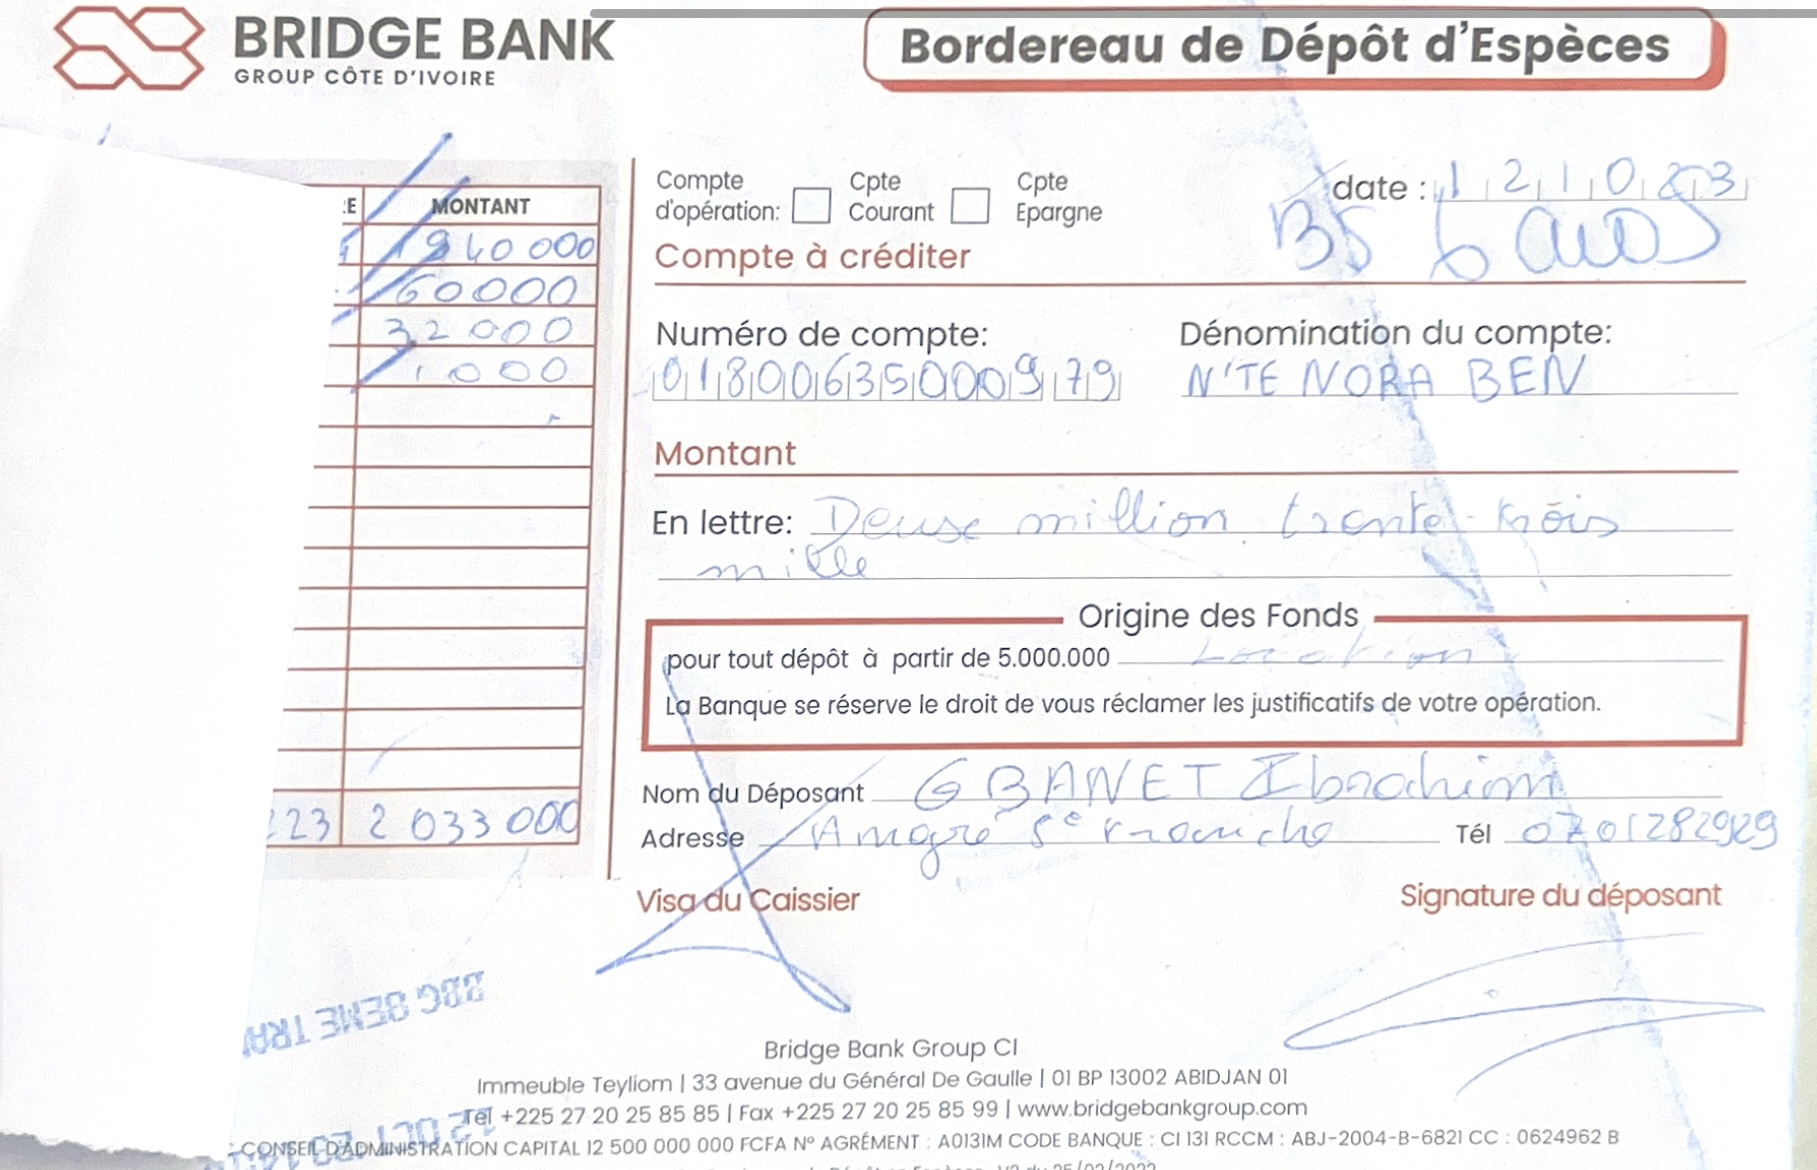 BRIDGE BANK
GROUP CÔTE D'IVOIRE
Bordereau de Dépôt d'Espèces
:E MONTANT
1940 000
60000
32000
1000
:23 2 033 000
Compte d'opération: Cpte Courant Cpte Epargne
date : 12 10 23
Compte à créditer
Numéro de compte:
01800635000979
Dénomination du compte:
N'TE NORA BEN
Montant
En lettre: Deuse million trente-trois
mille
Origine des Fonds
pour tout dépôt à partir de 5.000.000 Location
La Banque se réserve le droit de vous réclamer les justificatifs de votre opération.
Nom du Déposant GBANET Ibrahim
Adresse Angré 8e Tranche Tél 0701282929
Visa du Caissier
Signature du déposant
BBG 8EME TRA
Bridge Bank Group CI
Immeuble Teyliom | 33 avenue du Général De Gaulle | 01 BP 13002 ABIDJAN 01
Tél +225 27 20 25 85 85 | Fax +225 27 20 25 85 99 | www.bridgebankgroup.com
12 OCT
CONSEIL D'ADMINISTRATION CAPITAL 12 500 000 000 FCFA N° AGRÉMENT : A0131M CODE BANQUE : CI 131 RCCM : ABJ-2004-B-6821 CC : 0624962 B